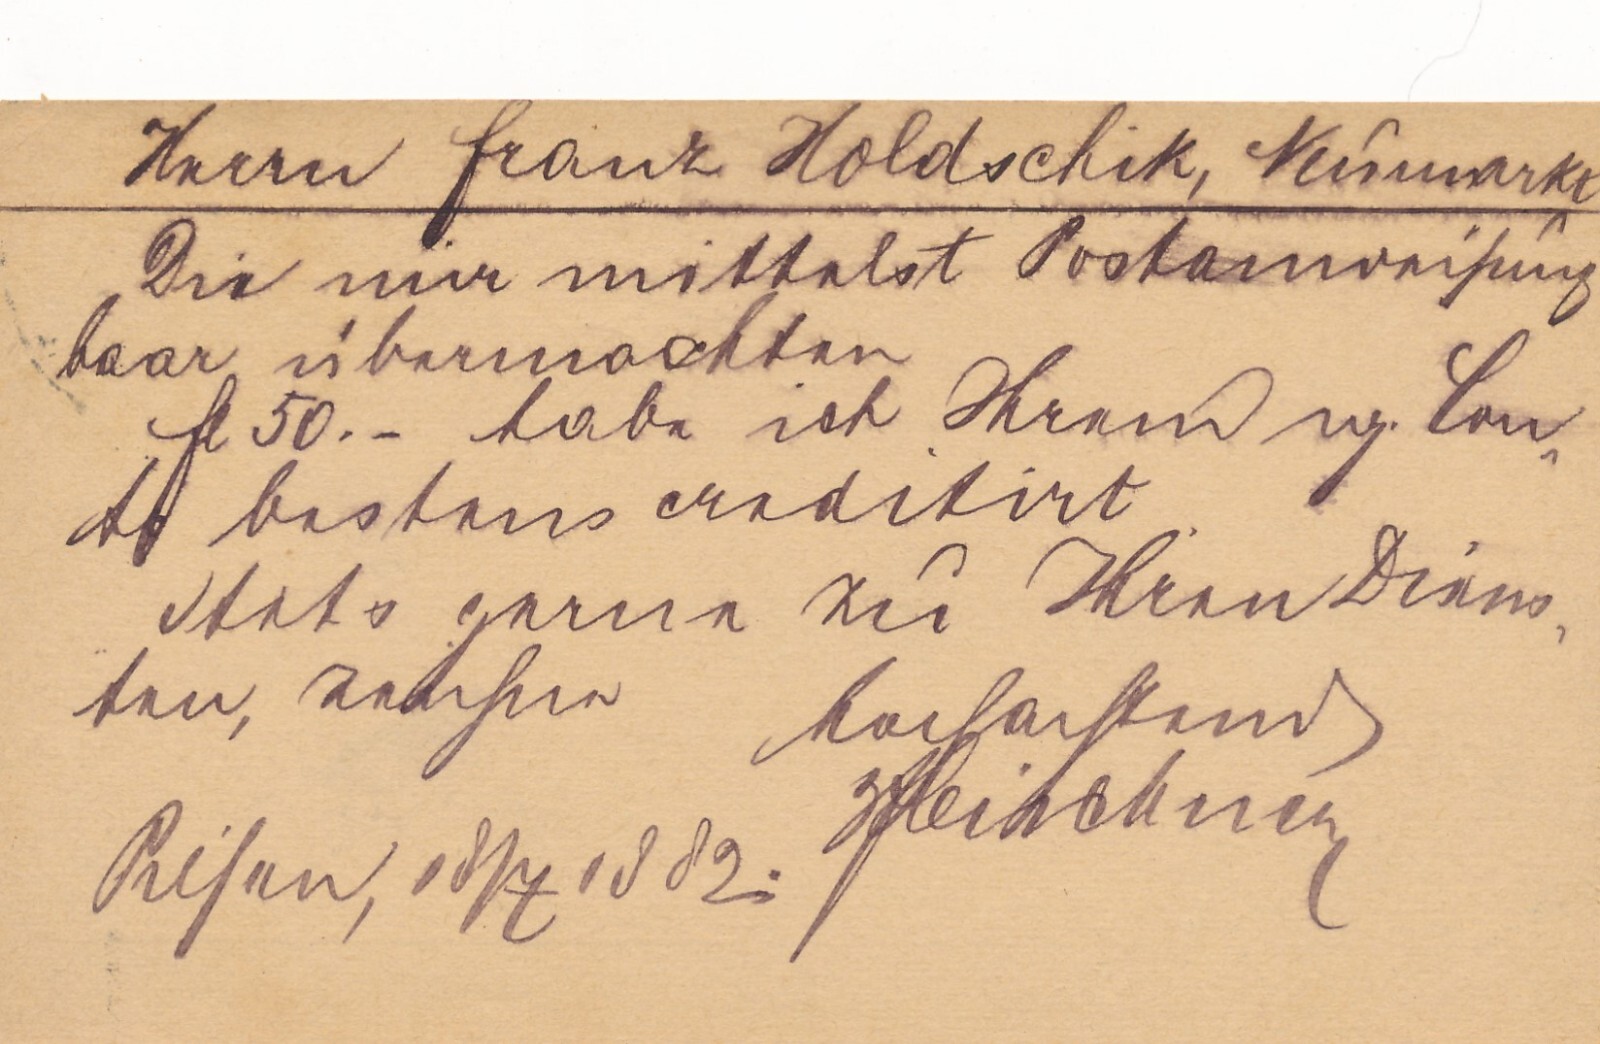 Herrn Franz Holdschik, Neumarkt
Die mir mittelst Postanweisung
baar übermachten
fl 50.- habe ich Ihrem w. Con-
to bestens creditirt
Stets gerne zu Ihren Diens-
ten, zeichne
hochachtend
Pilsen, 18/7 1882.